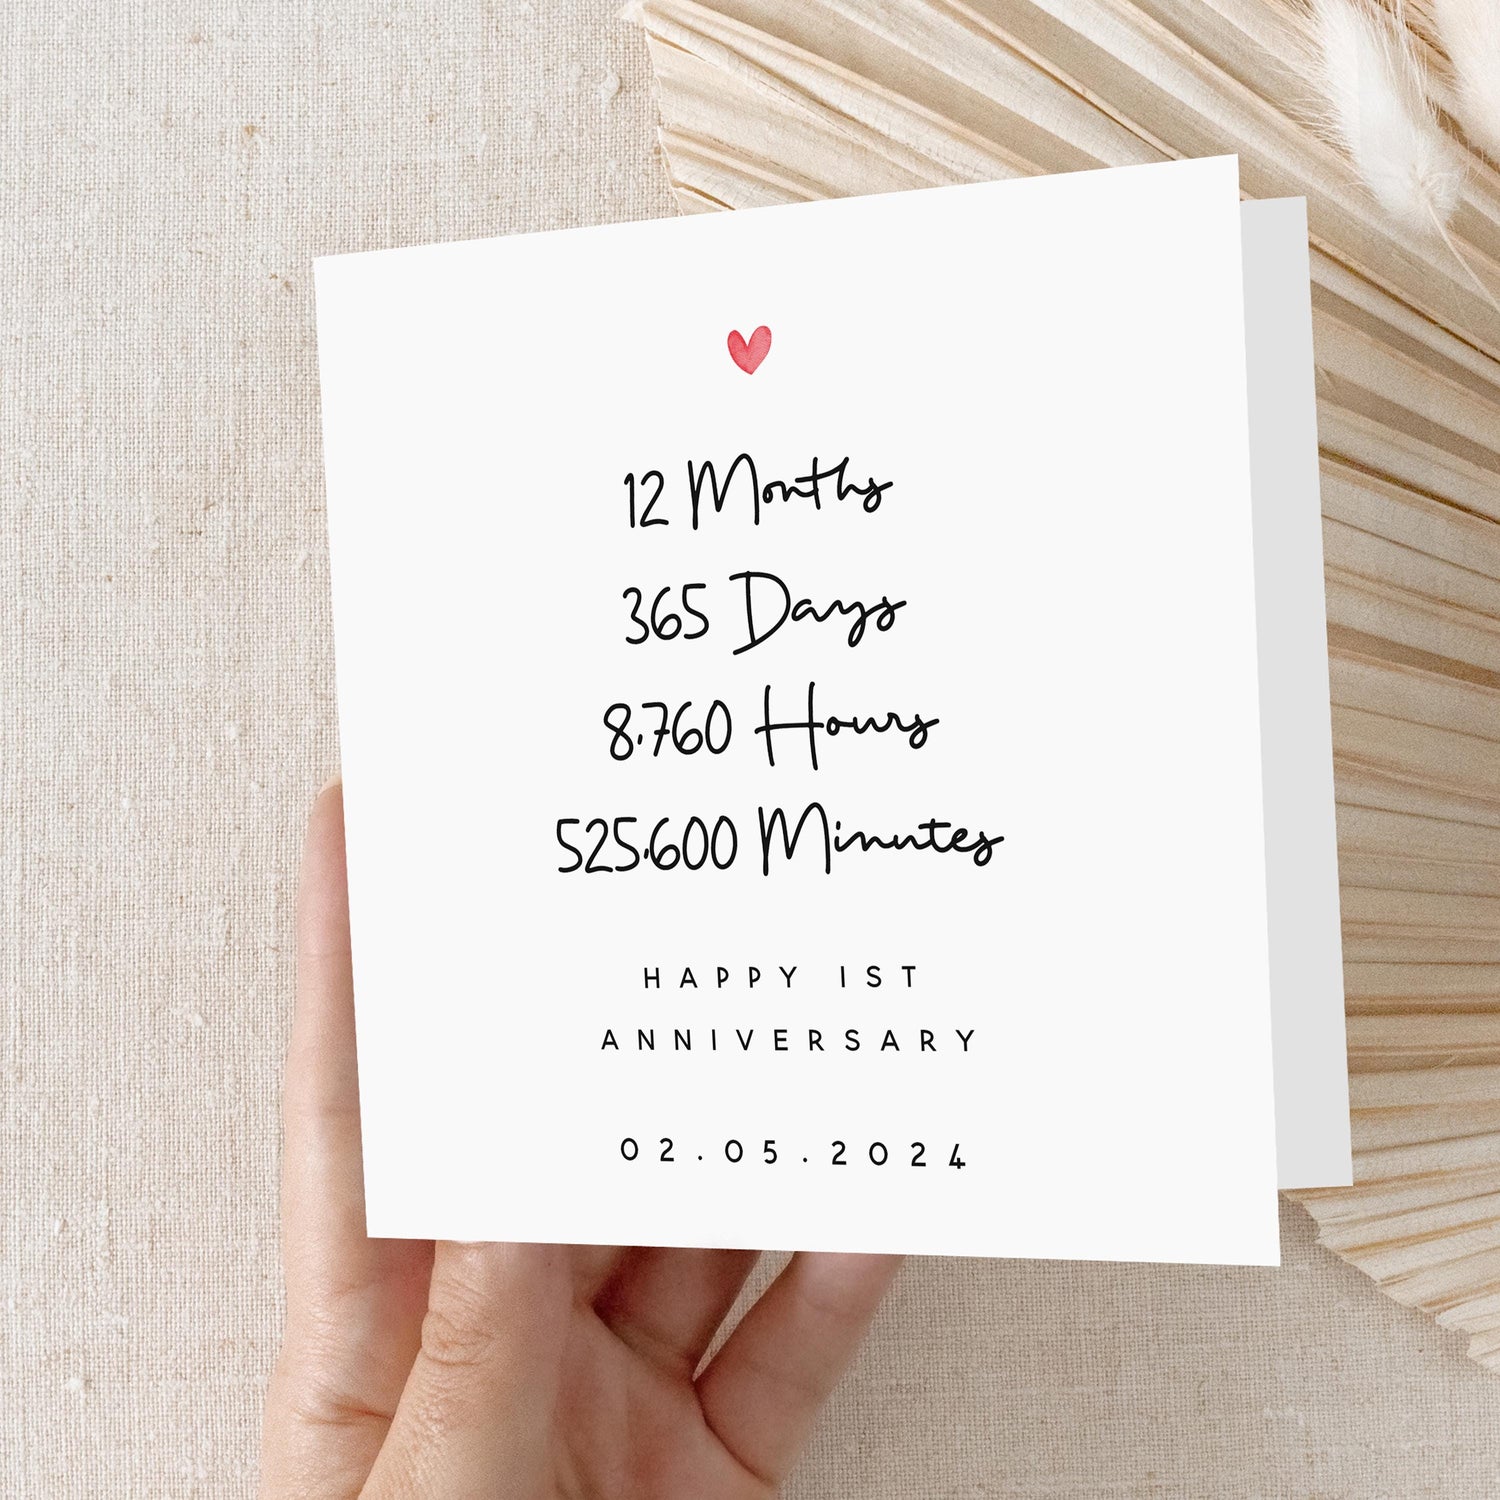 12 Months
365 Days
8,760 Hours
525,600 Minutes
HAPPY 1ST
ANNIVERSARY
02.05.2024